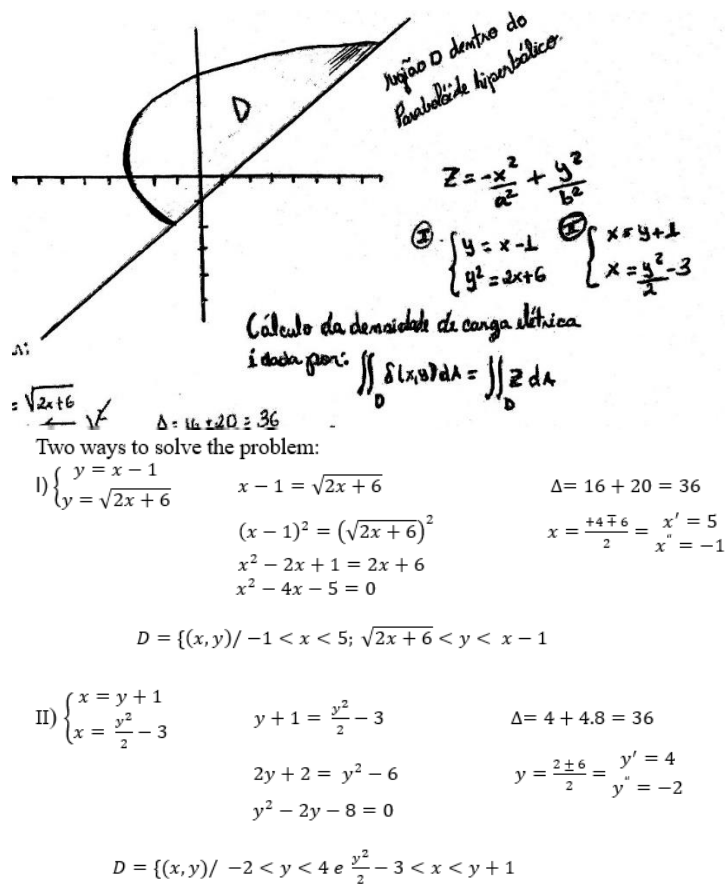 região D dentro do
Parabolóide hiperbólico.
D
Z = -x²/a² + y²/b²
I { y = x - 1
y² = 2x + 6
II { x = y + 1
x = y²/2 - 3
Cálculo da densidade de carga elétrica
é dada por: ∬_D δ(x,y) dA = ∬_D z dA
= √2x+6
Δ = 16 + 20 = 36
Two ways to solve the problem:
I) { y = x − 1
y = √2x + 6
x − 1 = √2x + 6
Δ= 16 + 20 = 36
(x − 1)² = (√2x + 6)²
x = +4 ∓ 6 / 2 = x′ = 5
x" = −1
x² − 2x + 1 = 2x + 6
x² − 4x − 5 = 0
D = {(x, y)/ −1 < x < 5; √2x + 6 < y < x − 1
II) { x = y + 1
x = y²/2 − 3
y + 1 = y²/2 − 3
Δ= 4 + 4.8 = 36
2y + 2 = y² − 6
y = 2 ± 6 / 2 = y′ = 4
y" = −2
y² − 2y − 8 = 0
D = {(x, y)/ −2 < y < 4 e y²/2 − 3 < x < y + 1